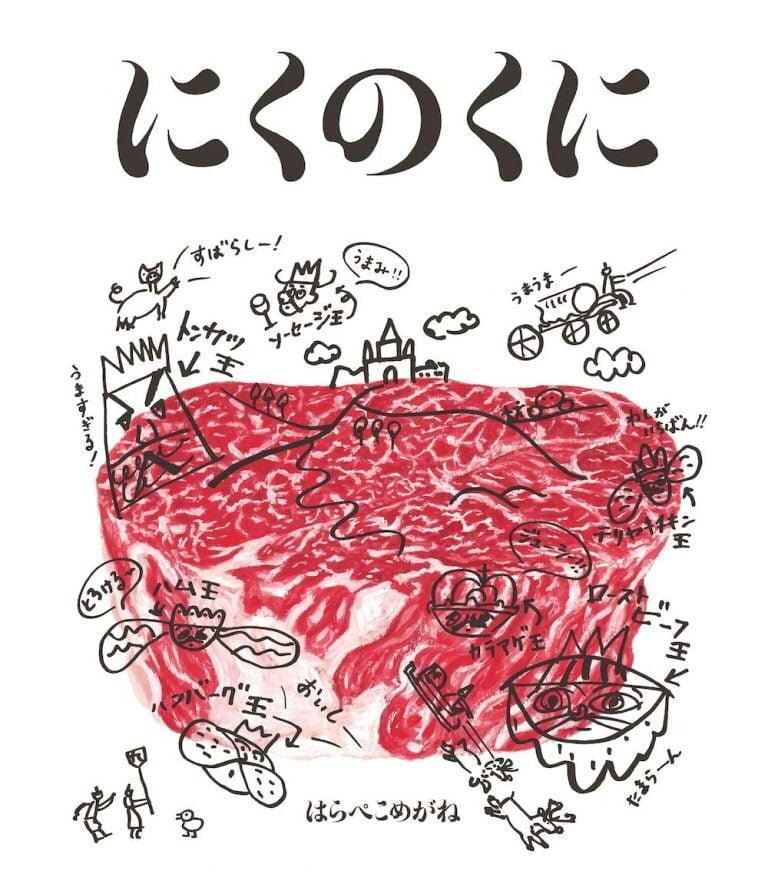 にくのくに
すばらしー!
うまみ!!
ソーセージ王
うまうまー
トンカツ
王
うますぎる!
わしが
いちばん!!
テリヤキチキン
王
ジューシー!!
とろける〜
ハム王
カラアゲ王
ロースト
ビーフ
王
ハンバーグ王
おいし
たまらーん
はらぺこめがね